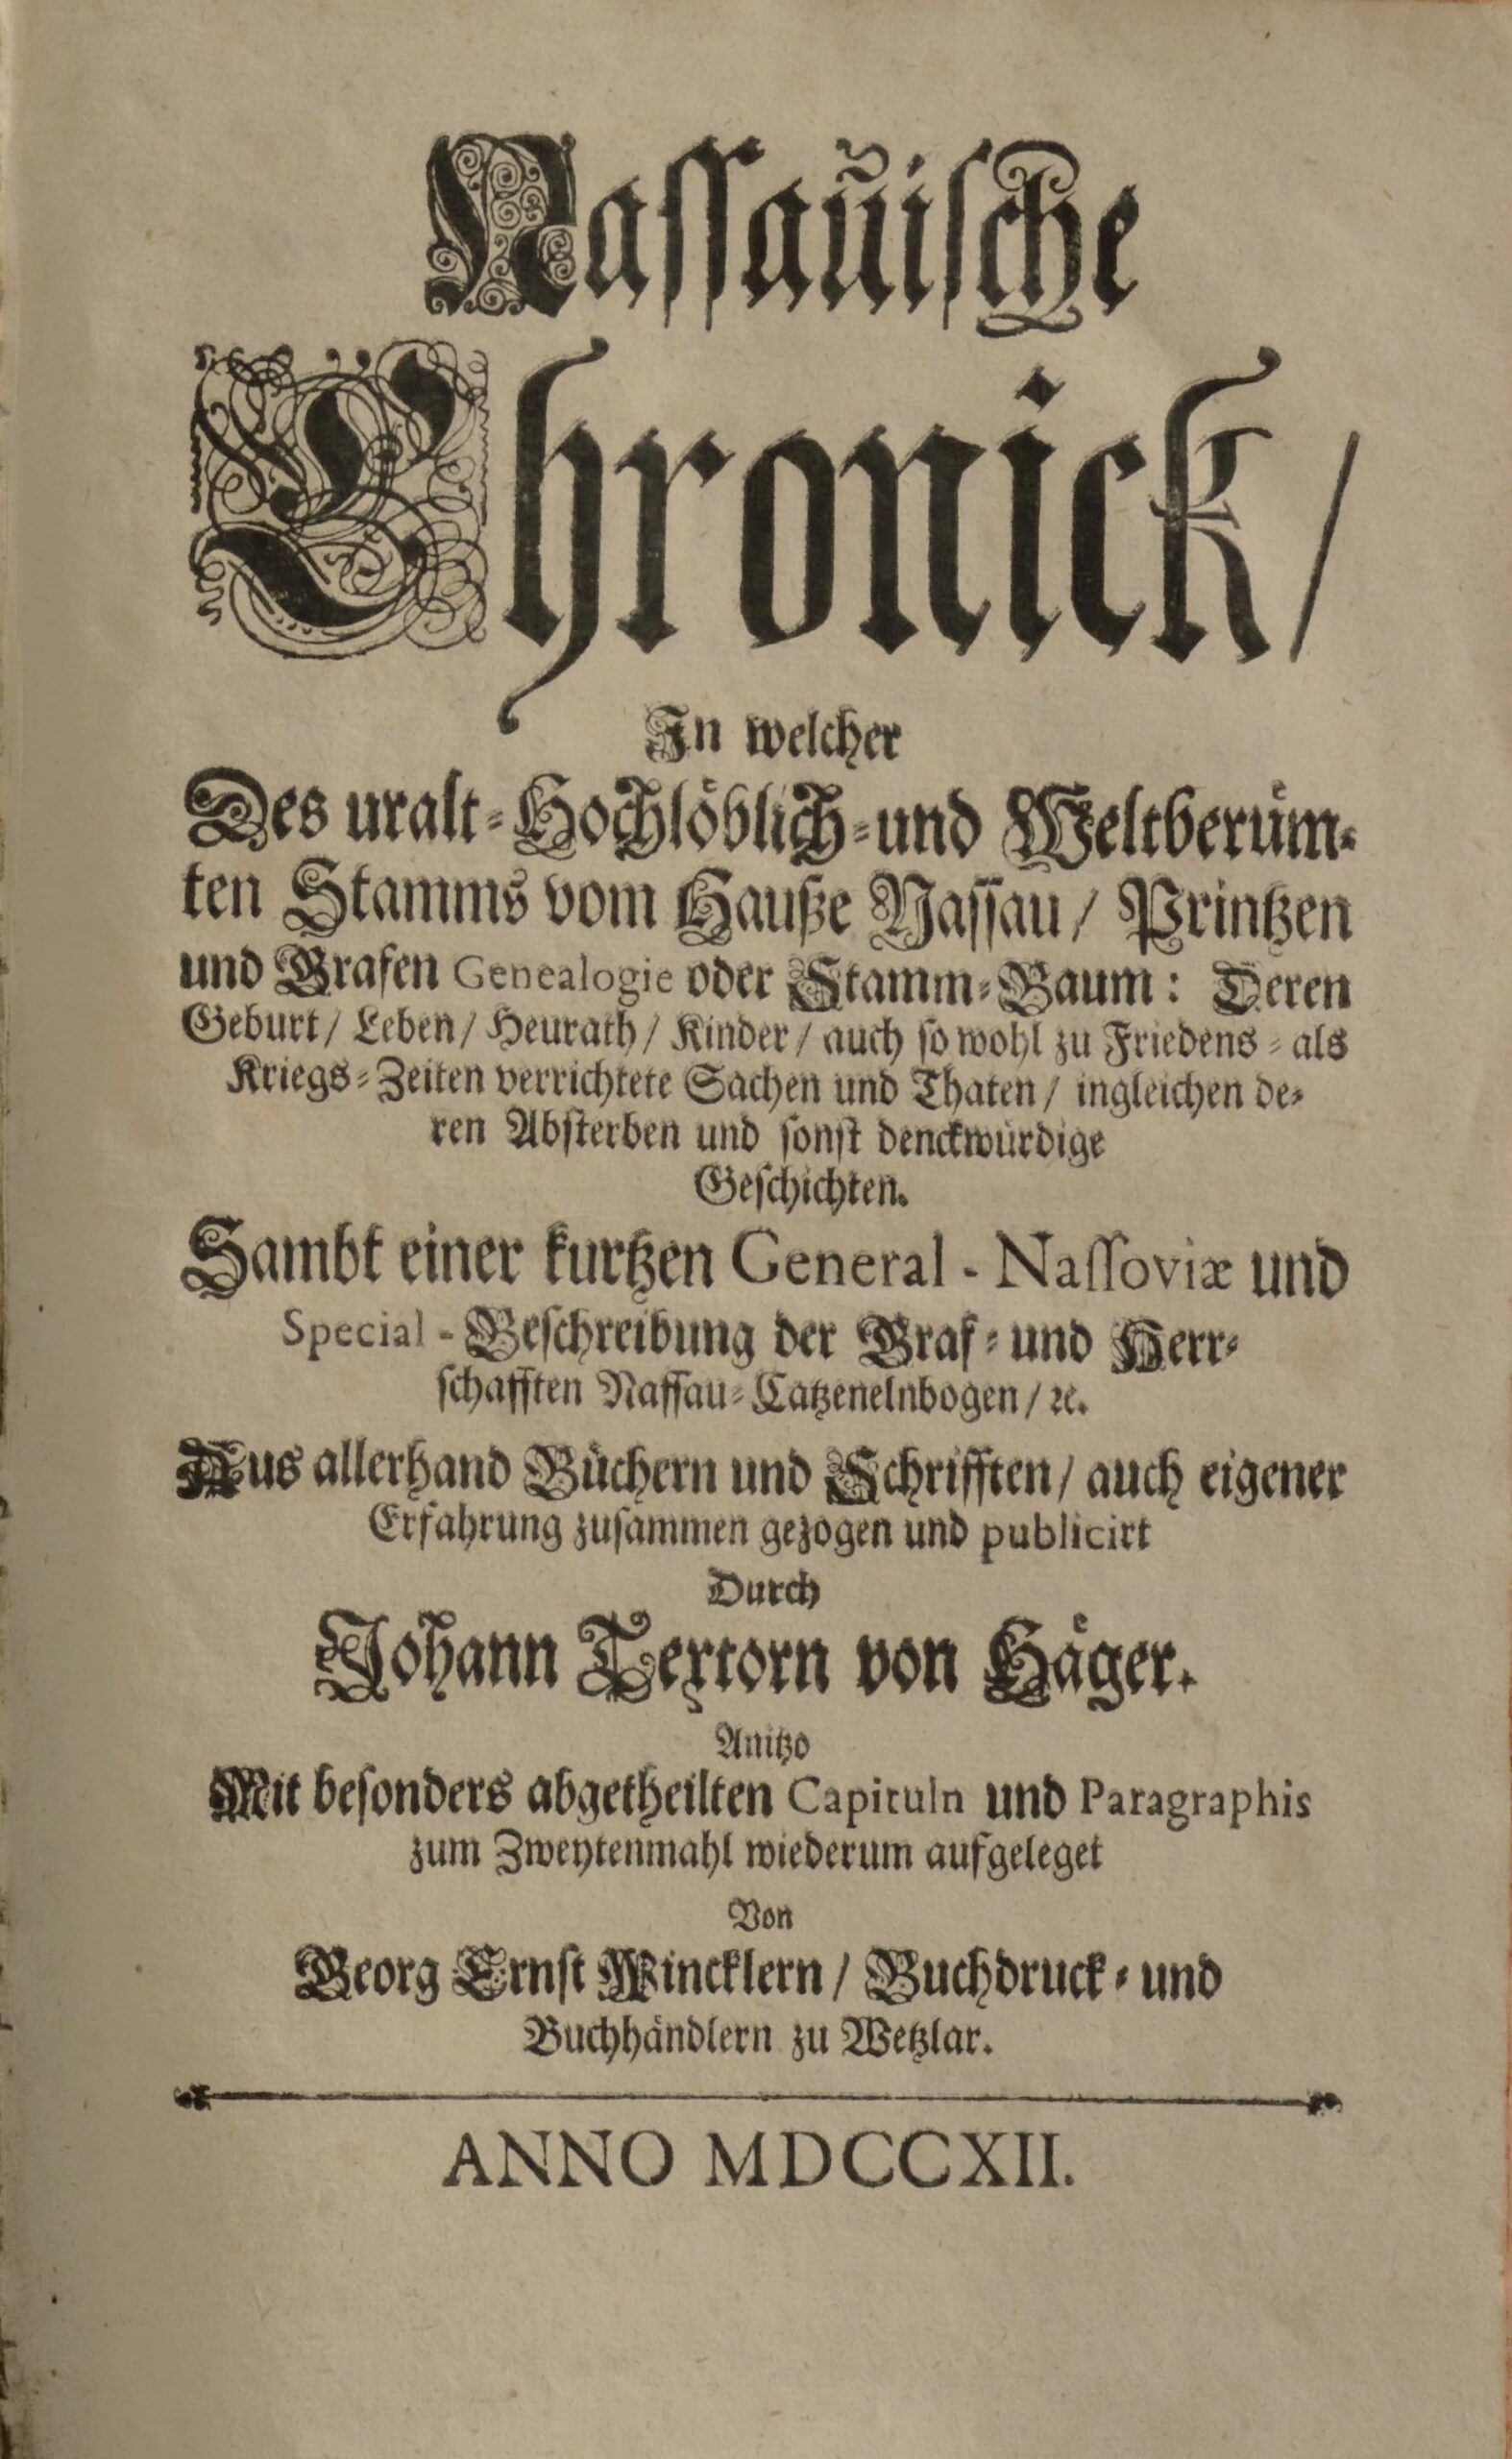 Nassauische
Chronick/
In welcher
Des uralt-Hochlöblich-und Weltberům-
ten Stamms vom Hauße Nassau/ Printzen
und Grafen Genealogie oder Stamm-Baum: Deren
Geburt/ Leben/ Heurath/ Kinder/ auch so wohl zu Friedens-als
Kriegs-Zeiten verrichtete Sachen und Thaten/ ingleichen de-
ren Absterben und sonst denckwürdige
Geschichten.
Sambt einer kurtzen General-Nassoviæ und
Special-Beschreibung der Graf-und Herr-
schafften Nassau-Catzenelnbogen/ ꝛc.
Aus allerhand Büchern und Schrifften/ auch eigener
Erfahrung zusammen gezogen und publicirt
Durch
Johann Textorn von Häger.
Anitzo
Mit besonders abgetheilten Capituln und Paragraphis
zum Zweytenmahl wiederum aufgeleget
Von
Georg Ernst Wincklern/ Buchdruck-und
Buchhändlern zu Wetzlar.
ANNO MDCCXII.